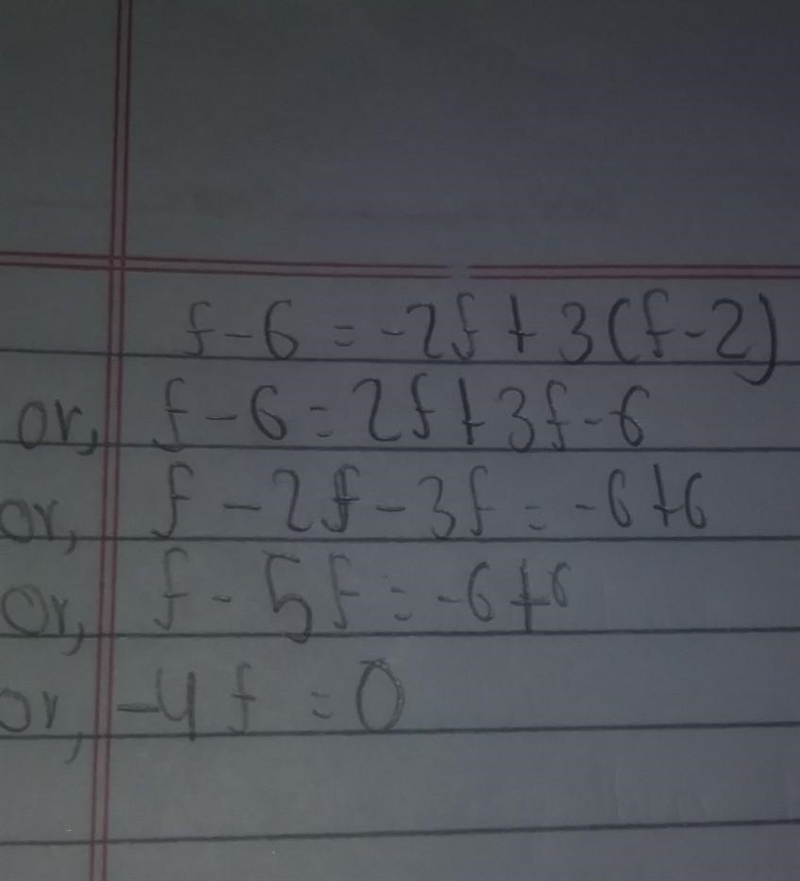 f-6 = -2f + 3(f-2)
or, f-6 = 2f+3f-6
or, f-2f-3f = -6+6
or, f-5f = -6+6
or, -4f = 0